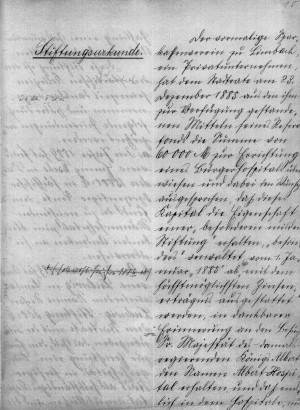 Stiftungsurkunde.
Der vormalige Spar-
kassenverein zu Limbach,
ein Privatunternehmen
hat dem Stadtrate am 22.
Dezember 1883 aus den ihm
zur Verfügung gestande-
nen Mitteln seines Reserve-
fonds die Summe von
60 000 M zur Errichtung
eines Bürgerhospitals über-
wiesen und dabei den Wunsch
ausgesprochen, daß dieses
Kapital die Eigenschaft
einer besonderen milden
Stiftung erhalten, beson-
ders verwaltet vom 1. Ja-
nuar 1885 ab mit dem
höchstmöglichsten Zinsen-
ertrage ausgestattet
werden, in dankbarer
Erinnerung an
Sr. Majestät des damals
regierenden Königs Albert
den Namen Albert Hospi-
tal erhalten und daß end-
lich in dem Hospitale